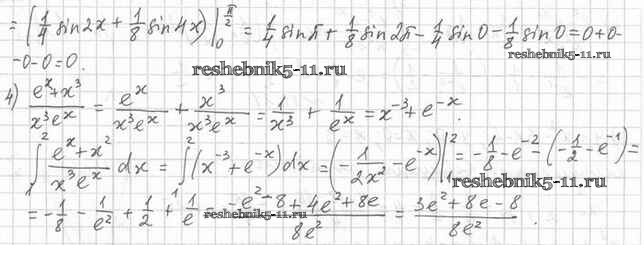 = (1/4 sin2x + 1/8 sin4x) |₀^(π/2) = 1/4 sinπ + 1/8 sin2π - 1/4 sin0 - 1/8 sin0 = 0+0-
-0-0=0.
reshebnik5-11.ru
reshebnik5-11.ru
4) (eˣ+x³)/(x³eˣ) = eˣ/(x³eˣ) + x³/(x³eˣ) = 1/x³ + 1/eˣ = x⁻³ + e⁻ˣ.
reshebnik5-11.ru
∫₁² (eˣ+x²)/(x³eˣ) dx = ∫₁² (x⁻³+e⁻ˣ)dx = (-1/(2x²) - e⁻ˣ) |₁² = -1/8 - e⁻² - (-1/2 - e⁻¹) =
reshebnik5-11.ru
= -1/8 - 1/e² + 1/2 + 1/e = (-e²-8+4e²+8e)/(8e²) = (3e²+8e-8)/(8e²).
reshebnik5-11.ru